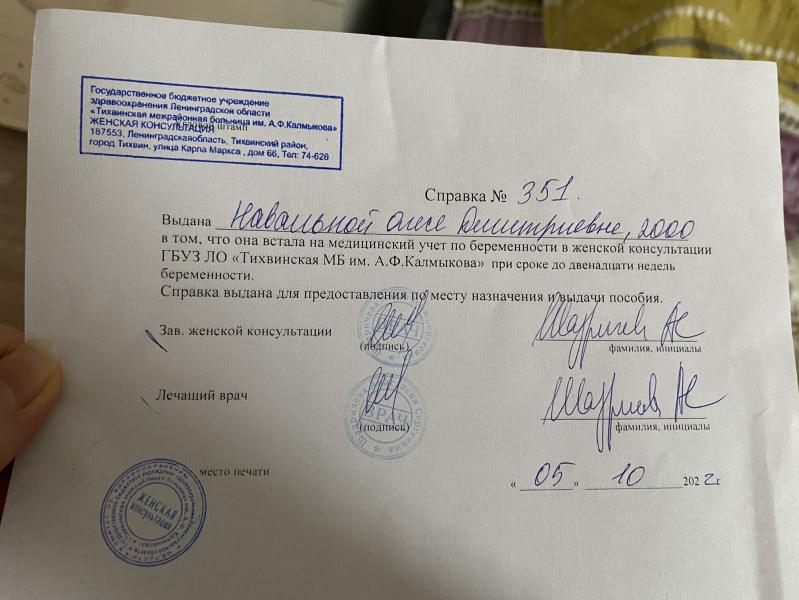 Государственное бюджетное учреждение
здравоохранения Ленинградской области
«Тихвинская межрайонная больница им. А.Ф.Калмыкова»
ЖЕНСКАЯ КОНСУЛЬТАЦИЯ штамп
187553, Ленинградскаяобласть, Тихвинский район,
город Тихвин, улица Карла Маркса , дом 66, Тел: 74-626
Справка № 351.
Выдана Навальной Олесе Дмитриевне, 2000
в том, что она встала на медицинский учет по беременности в женской консультации
ГБУЗ ЛО «Тихвинская МБ им. А.Ф.Калмыкова» при сроке до двенадцати недель
беременности.
Справка выдана для предоставления по месту назначения и выдачи пособия.
Зав. женской консультации
(подпись)
фамилия, инициалы
Лечащий врач
ВРАЧ
(подпись)
фамилия, инициалы
место печати
« 05 » 10 2022г
ЖЕНСКАЯ
консультация